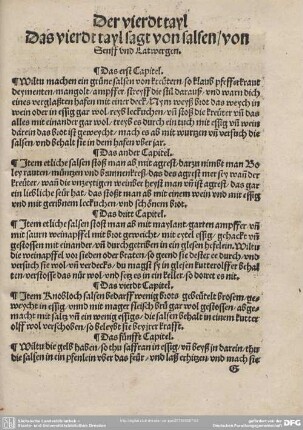 Der vierdt tayl
Das vierdt tayl sagt von salsen/ von
Senff vnd Latwergen.
¶ Das erst Capitel.
¶ Wiltu machen ein grüne salsen von kreütern/ so klaub pfefferkraut
deymenten/ mangolt/ ampffer/ streyff die stil darauß/ vnd warn dich
eines verglaßten hafen mit einer deck/ Nym weyß brot das weych in
wein oder in essig gar wol/ reyb leckuchen/ vñ stoß die kreüter vñ das
alles mit einander gar wol/ treyb es durch ein tuch mit essig vñ wein
darein das brot ist geweycht/ mach es ab mit wurtzen vñ versuch die
salsen/ vnd behalt sie in dem hafen vber jar.
¶ Das ander Capitel.
¶ Item etliche salsen stoß man ab mit agrest/ darzu nimbt man Bo
ley rauten/ müntzen vnd brunnkreß/ das des agrest mer sey wañ der
kreüter/ wañ die vnzeytigen weinber heyst man agrest/ das
gar ein liebliche seür hat/ das stoßt man ab mit einem wein vnd mit essig
vnd mit geribnem leckuchen/ vnd schönem brot.
¶ Das drit Capitel.
¶ Item etlich salsen stost man ab mit maylant/ garten ampffer/ vñ
mit saurn weinapffel/ mit brot geweicht/ mit eytel essig/ gehackt vñ
gestossen mit einander/ vñ durchgetriben in ein glesen hefelein. Wiltu
die weinapffel vor sieden oder braten/ so geend sie dester ee durch/ vnd
versuch sie wol vñ verdecks/ du magst sy in glesen kutterolffen behal
ten/ verstoß das nür wol/ vnd setz es in ein keler/ so doret es nit.
¶ Das vierdt Capitel.
¶ Item Knobloch salsen bedarff wenig brots/ gebütelt brosem/ ge-
weycht in essig/ vnd mit mager fleisch brü gar wol gestossen/ abge-
macht mit saltz vñ ein wenig essigs/ die salsen behalt in einem kutter
olff wol verschoben/ so beleybt sie bey jrer krafft.
¶ Das fünfft Capitel.
¶ Wiltu die gelb haben/ so thu saffran in essig/ vñ beyß jn darein/ thu
die salsen in ein pfenlein vber das feür/ vnd laß erhitzen/ vnd mach sie
G